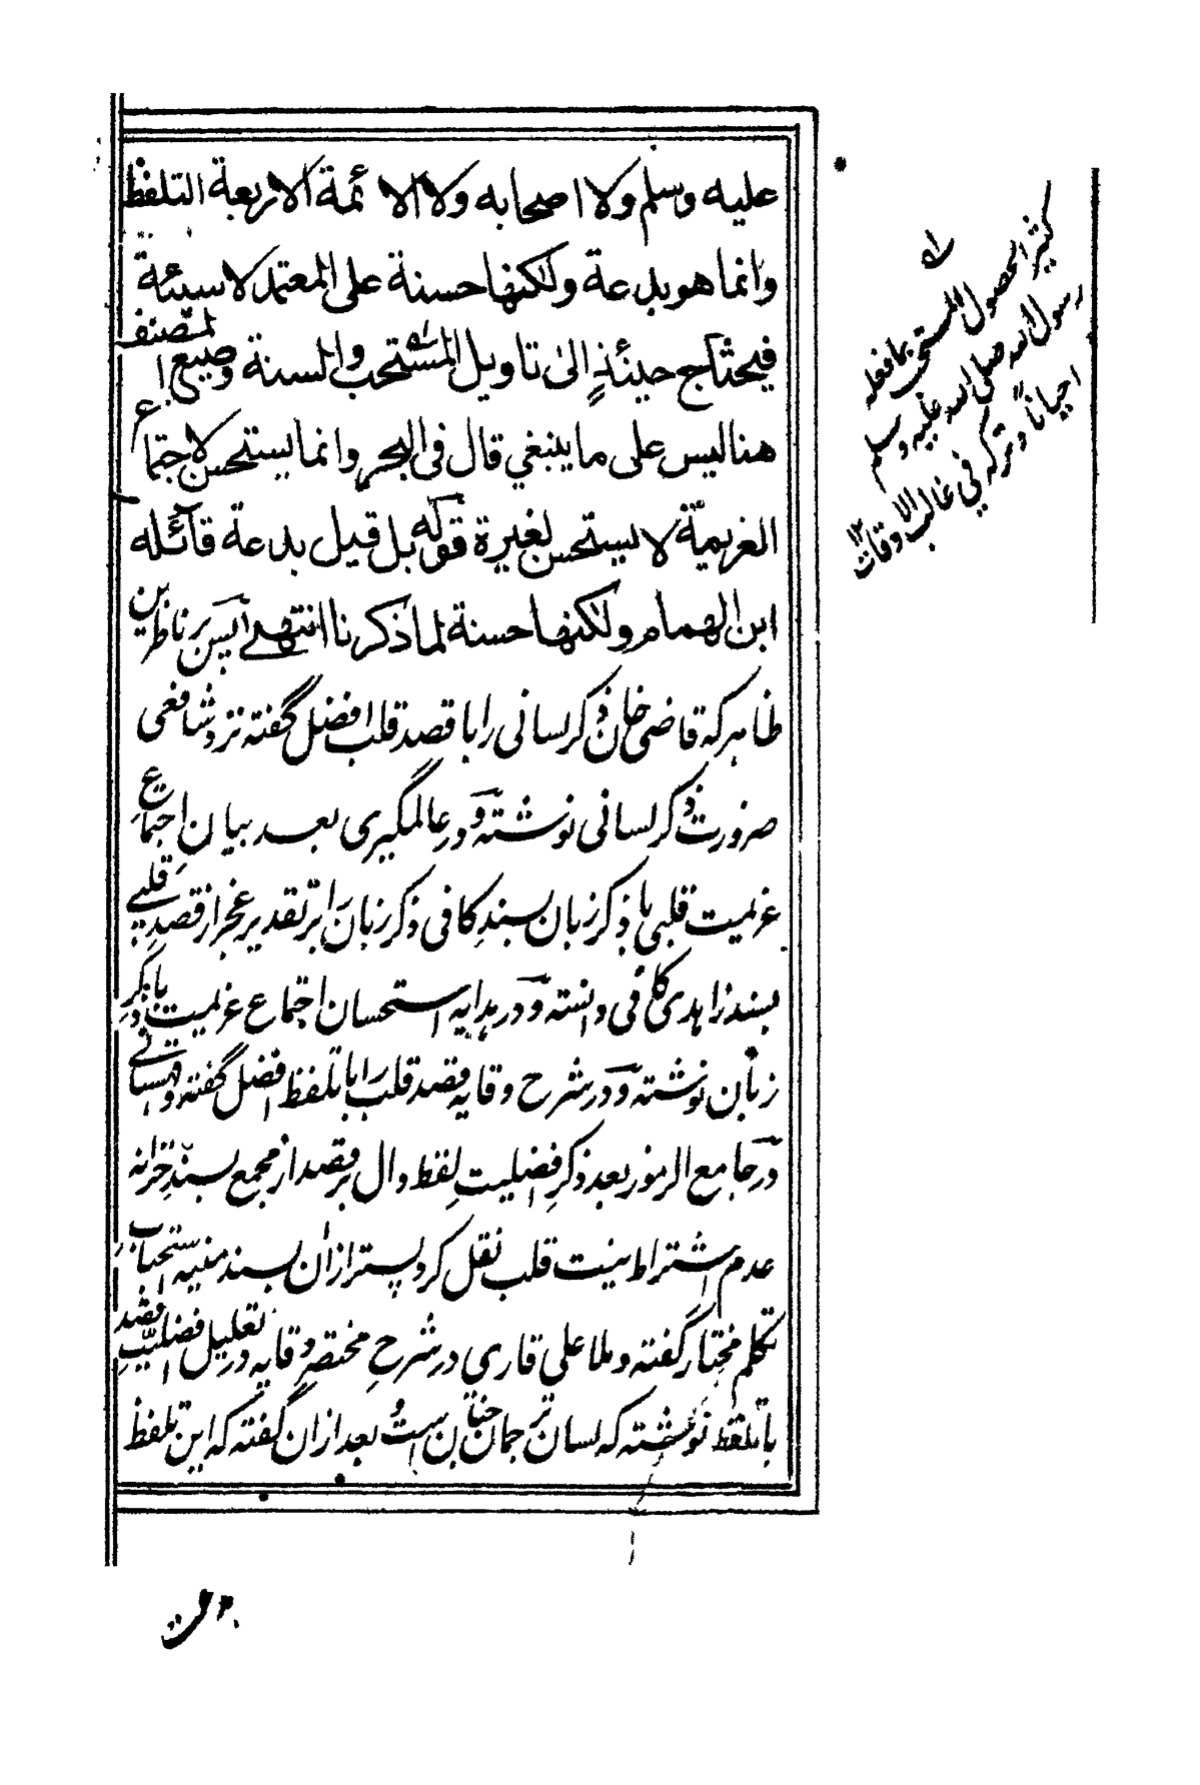 عليه وسلم ولا اصحابه ولا الائمة الاربعة التلفظ
وانما هو بدعة ولكنها حسنة على المعتمد لا سيئة
فيحتاج حينئذٍ الى تاويل المستحب والسنة وصنيع المصنف
هنا ليس على ما ينبغي قال فى البحر وانما يستحسن لاجتماع
العزيمة لا يستحسن لغيرة قوله بل قيل بدعة قائله
ابن الهمام ولكنها حسنة لما ذكرنا انتهے پس بر ناظرين
ظاہر كه قاضى خان ذكر لسانى را با قصد قلب افضل گفته نزد شافعى
ضرورت ذكر لسانى نوشته و در عالمگيرى بعد بيان اجتماع
عزيمت قلبى با ذكر زبان بسندِ كافى ذكر زبان را بر تقدير عجز از قصدِ قلبے
بسند زاهدى كافى دانسته و در ہدايه استحسان اجتماع عزيمت با ذكرِ
زبان نوشته و در شرح وقايه قصد قلب را با تلفظ افضل گفته و قهستانے
در جامع الرموز بعد ذكرِ فضيليتِ لفظ دال بر قصد از مجمع بسندِ خزانه
عدم اشتراط نيت قلب نقل كرد پستر ازان بسند منيه استحباب
تكلم مختار گفته و ملا على قارى در شرحِ مختصر وقايه در تعليل فضليّتِ قصد
با تلفظ نوشته كه لسان ترجمان جنان ست و بعد ازان گفته كه اين تلفظ
كثير الحصول المستحب بما فعله
رسول الله صلى الله عليه وسلم
احياناً و تركه في غالب الاوقات ١٢